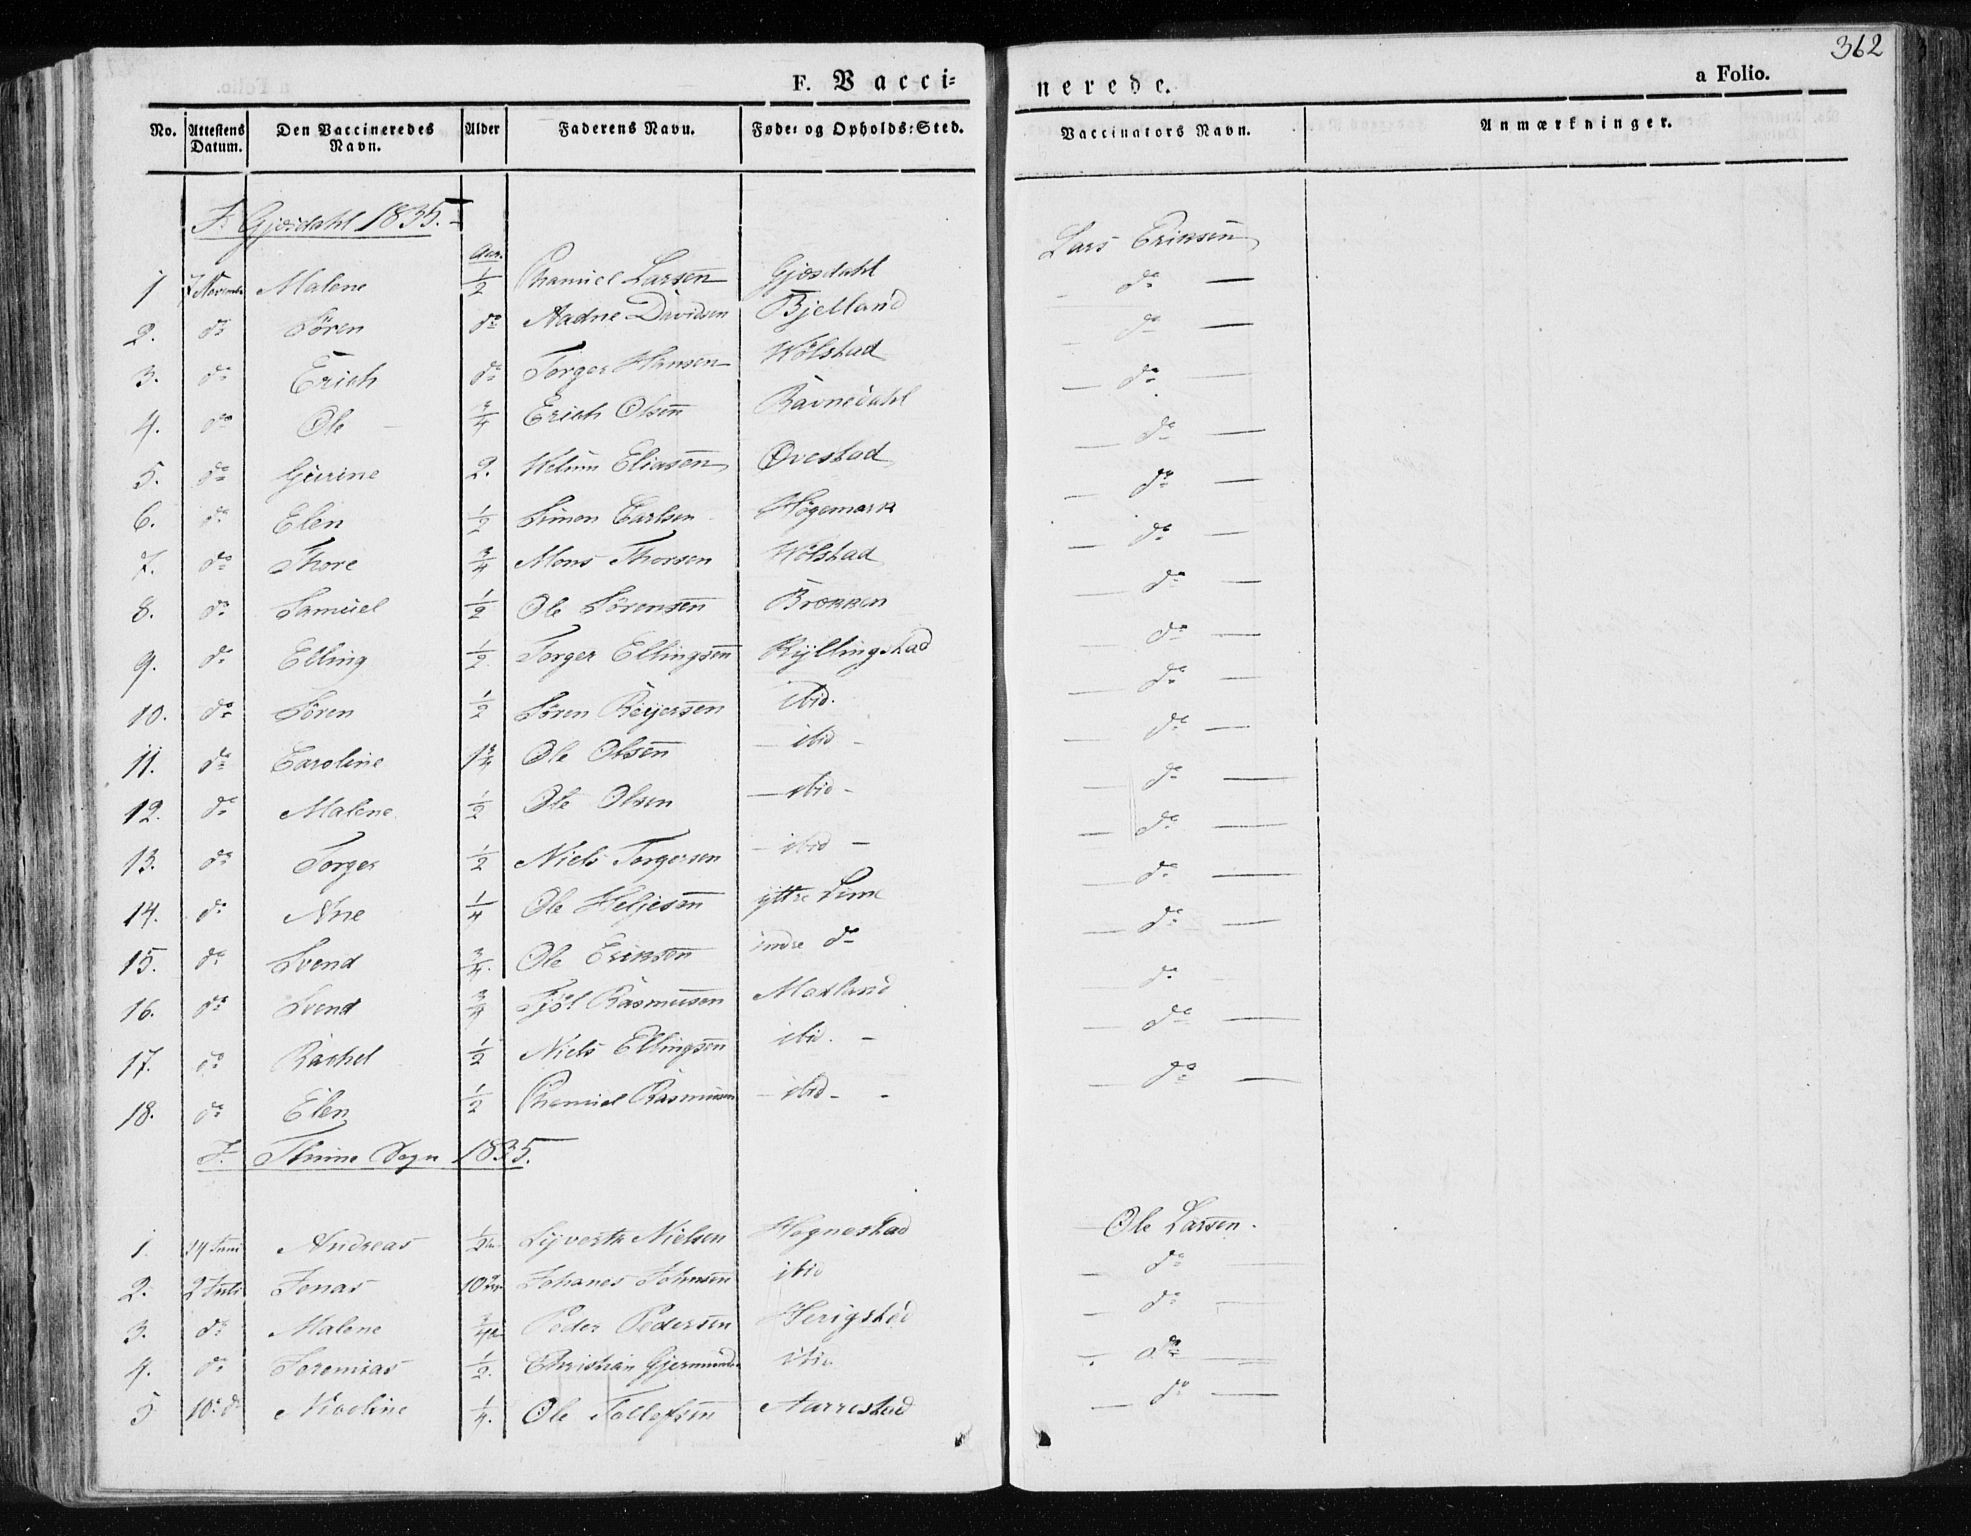 362
F. Vacci= nerede. a Folio.
No. Attestens Datum. Den Vaccineredes Navn. Alder Faderens Navn. Føde= og Opholds=Sted. Vaccinators Navn. Anmærkninger.
Gjesdahl 1835.
Aar.
1 7 Novembr Malene 1/2 Chamiel Larsen Gjesdahl Lars Eriksen
2. do Sören do Aadne Davidsen Bjelland do
3. do Erich do Torger Hansen Wölstad do
4. do Ole 3/4 Erich Olsen Ravnedahl do
5. do Gurine 2. Eliasen Ovestad do
6. do Elen 1/2 Simon Carlsen Högemark do
7. do Thore 3/4 Mons Thorsen Wölstad do
8. do Samuel 1/2 Ole Sörensen Brekken do
9. do Elling 1/2 Torger Ellingsen Kyllingstad do
10. do Sören 1/2 Sören Reijersen ibid. do
11. do Caroline 1 3/4 Ole Olsen ibid do
12. do Malene 1/2 Ole Olsen ibid do
13. do Torger 1/2 Niels Torgersen ibid do
14. do Ane 1/4 Ole Heljesen yttre Lime do
15. do Svend 3/4. Ole Eriksen indre do do
16. do Svend 3/4 Rasmusen Madland do
17. do Rachel 1/2 Niels Ellingsen ibid. do
18. do Elen 1/2 Chamiel Rasmusen ibid do
F. Thime Sogn 1835.
1. 24 Juni Andreas 1/2 Sijvert Nielsen Hognestad Ole Larsen.
2. 2 Juli Jonas 10 Johanes Johnsen ibid do
3. do Malene 3/4 Peder Pedersen Herigstad do
4. do Jeremias 1/2. Christian Gjermunds ibid do
5 10. do Nicoline 1/4. Ole Tollefsen Aarrestad do